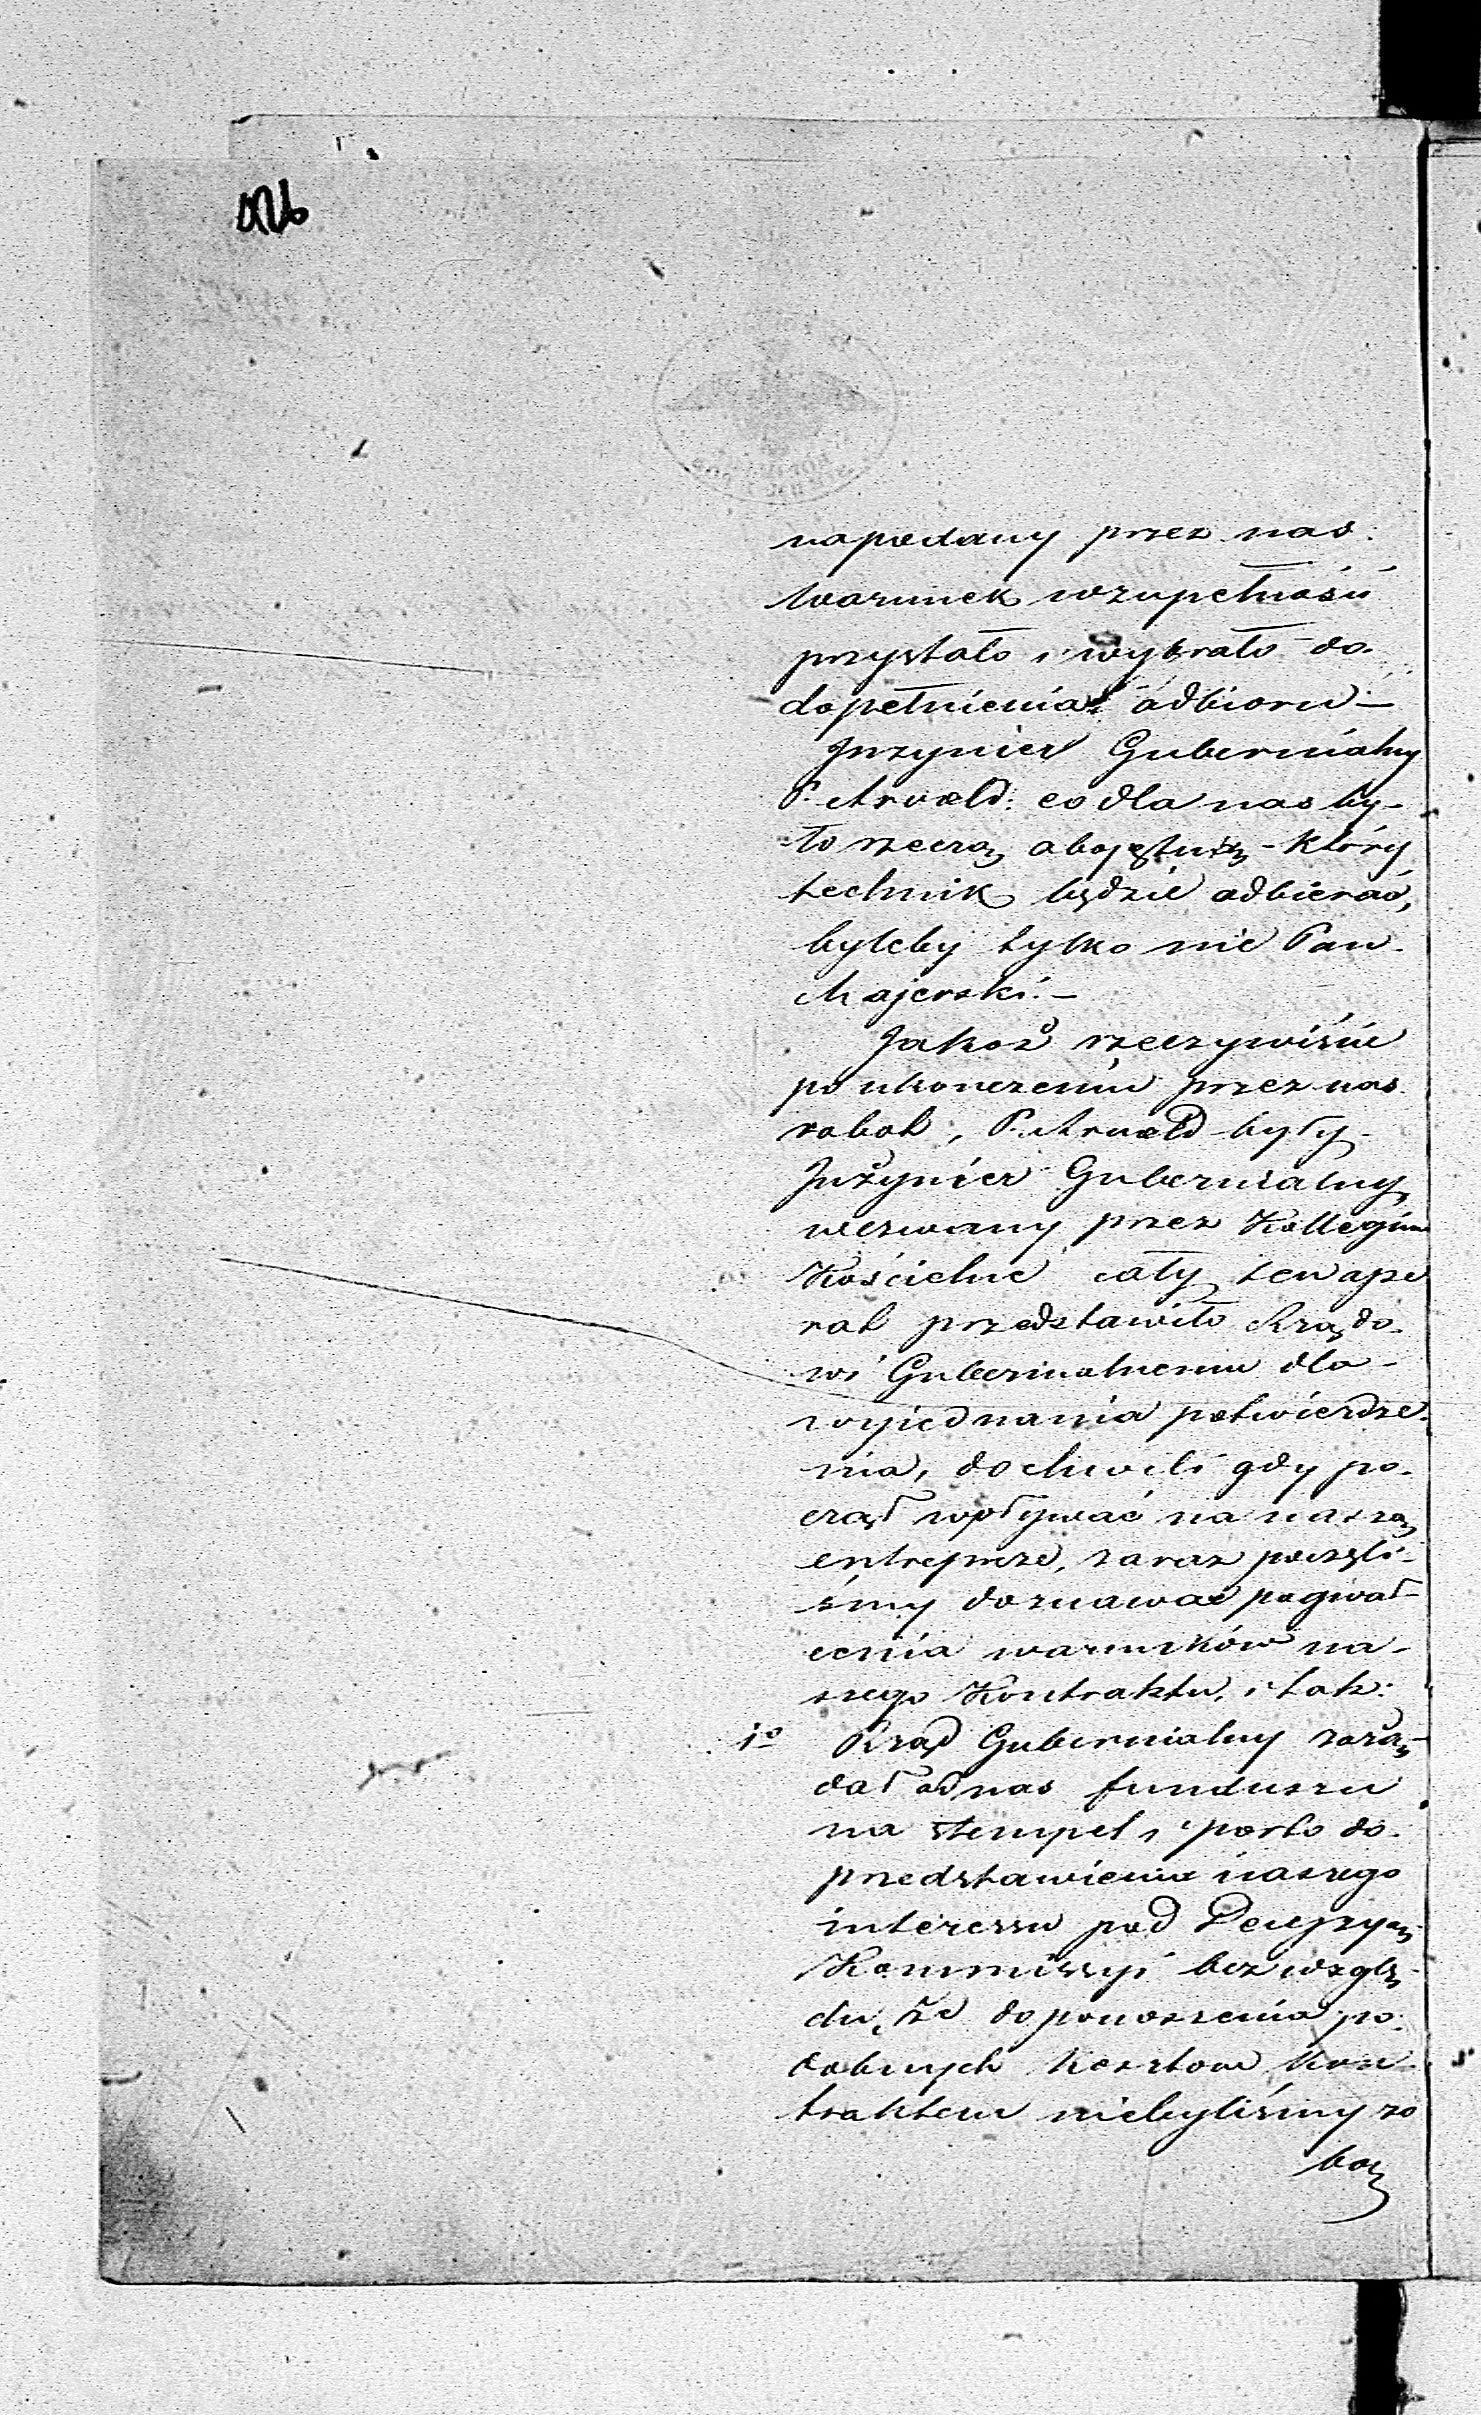 na podany przez nas
warunek w zupełności
przystało i wybrało do
dopełnienia odbioru –
Jnzynier Gubernialny
P. Arnold: co dla nas by-
ło rzeczą obojętną – który
technik będzie odbierać,
byleby tylko nie Pan
Majerski. –
Jakoż rzeczywiście
po ukonczeniu przez nas
robot, P. Arnold były
Jnżynier Gubernialny,
wezwany przez Kollegium
Kościelne cały ten ope
rat przedstawiło Rządo-
wi Gubernialnemu dla
wyjednania potwierdze-
nia, do chwili gdy po-
czął wpływać na naszą
entreprizę, zaraz poczęli-
śmy doznawać pogwał-
cenia warunków na-
szego Kontraktu, i tak:
1o Rząd Gubernialny zażą-
dał od nas funduszu
na stempel i porto do
przedstawienia naszego
interessu pod Decyzyą
Kommissyi bez wzglę-
du, że do ponoszenia po-
dobnych kosztow kon-
traktem niebyliśmy zo
bo